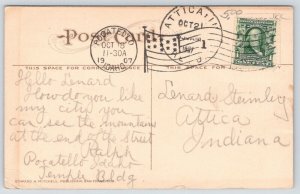 Post Card.
POCATELLO
OCT 18
11-30A
1907
IDAHO
ATTICA, IND
OCT 21
1907
1
THIS SPACE FOR
Hello Lenard
How do you like
my city you
can see the mountains
at the end of the street
Ralph
Pocatello Idaho
Temple Bldg
Lenard Steinberg
Attica
Indiana
EDWARD H. MITCHELL, PUBLISHER, SAN FRANCISCO